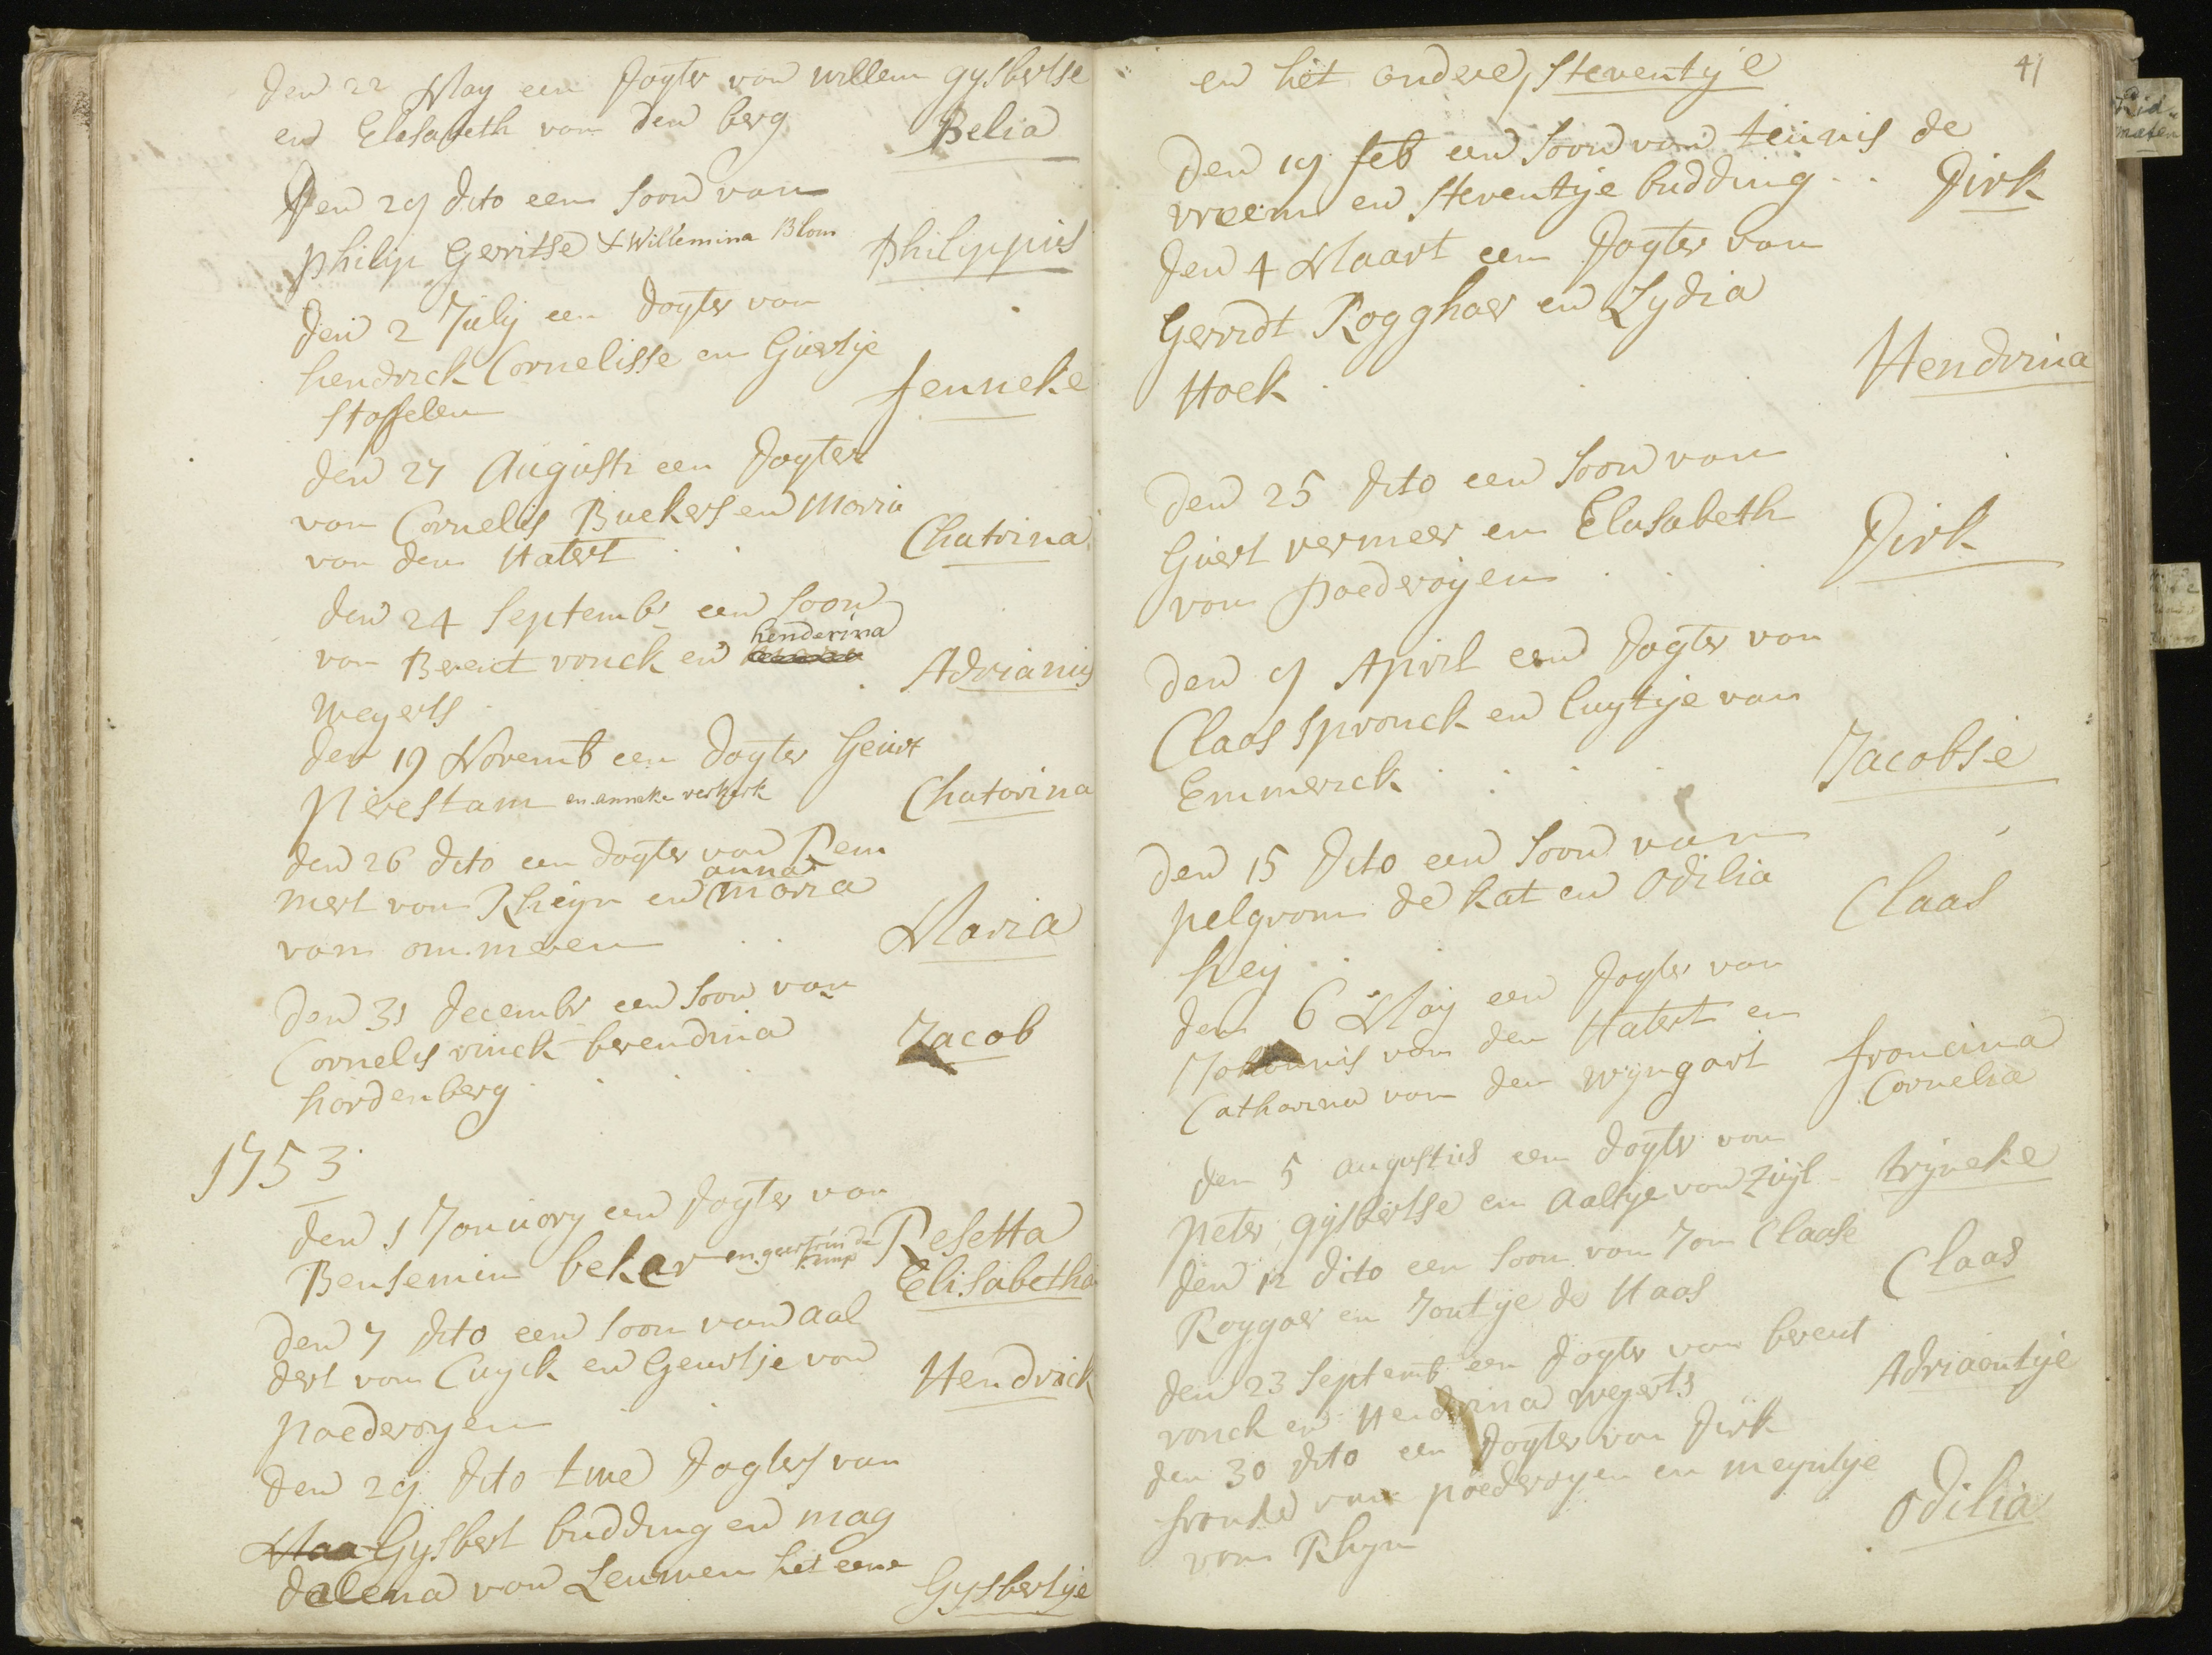 den 22 May een dogter van willem gysbertse
en Elisabeth van den berg Belia
Den 29 dito een soon van
philip Gerritse & Willemina Blom philippus
den 2 July een dogter van
hendrick Cornelisse en Guertje
Stoffelen Jenneke
den 27 Augusti een dogter
van Cornelis Buekers en Maria
van den Hatert Chatrina
den 24 Septembr een soon
van Berent vonck en henderina
Weyerts Adrianus
den 19 Novemb een dogter Geurt
Pirestam en anneke verkerk Chatarina
den 26 dito een dogter van Rem
mert van Rheyn en anna Maria
van ommeren Maria
den 31 decembr een soon van
Cornelis vinck berendina
hardenberg Jacob
1753
den 1 January een dogter van
Bensemin beker en geertruida Kamp Resetta
Elisabetha
den 7 dito een soon van Aal
dert van Cuyck en Geurtje van
poederoyen Hendrick
den 29 dito twe dogters van
Maa Gysbert budding en mag
dalena van Leuwen het eene Gysbertje
41
en het andere, Steventje
den 19 feb een soon van teunis de
vreem en Steventje budding Dirk
den 4 Maart een dogter van
Gerridt Rogghaer en Lydia
Hoek Hendrina
den 25 dito een soon van
Guert vermeer en Elisabeth
van poederoyen Dirk
den 9 April een dogter van
Claas spronck en luytje van
Emmerick Jacobsie
den 15 dito een soon van
pelgrom de kat en Odilia
heij Claas
den 6 May een dogter van
Johannis van den Hatert en
Catharina van den wyngart francina
Cornelia
den 5 augustus een dogter van
peter gysbertse en Aaltje van Zuyl trijneke
den 12 dito een soon van Jan Claase
Roggaer en Jantje de Haas Claas
den 23 Septemb een dogter van berent
vonck en Hendrina weyerts Adriaentje
den 30 dito een dogter van dirk
franke van poederoyen en meyntje
van Rhyn Odilia